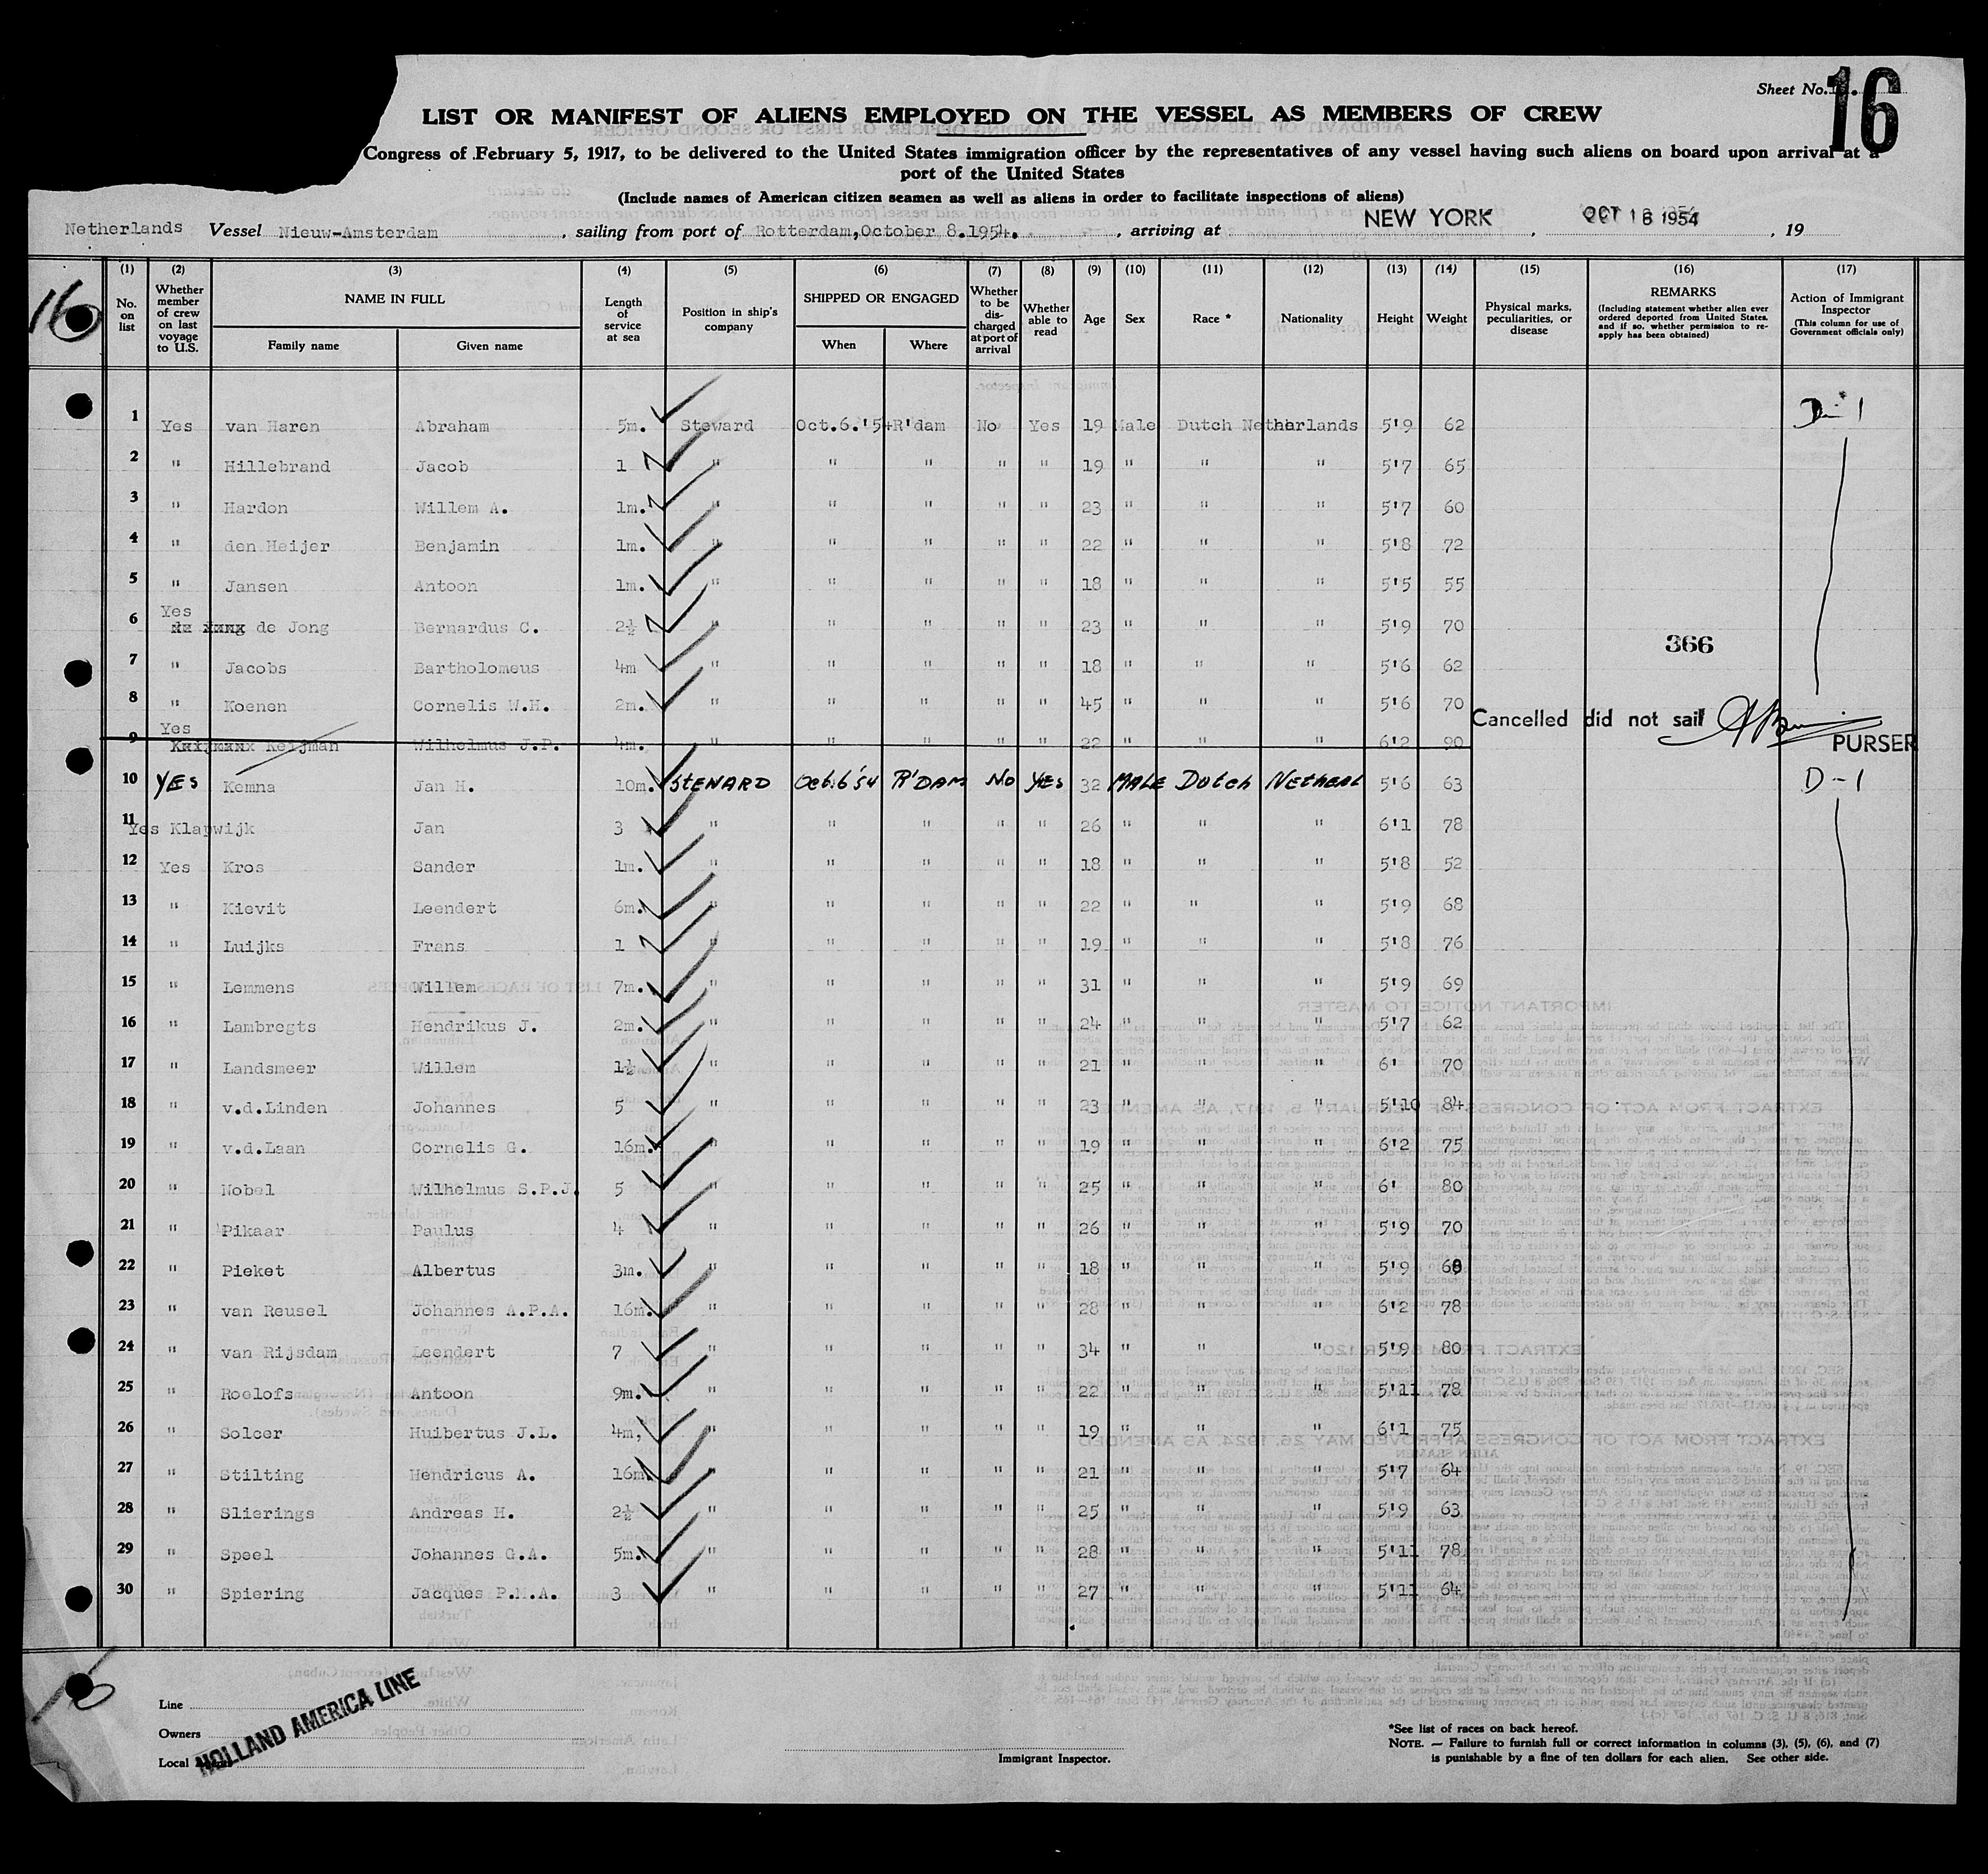 Sheet No. 16
LIST OR MANIFEST OF ALIENS EMPLOYED ON THE VESSEL AS MEMBERS OF CREW
Congress of February 5, 1917, to be delivered to the United States immigration officer by the representatives of any vessel having such aliens on board upon arrival at a
port of the United States
(Include names of American citizen seamen as well as aliens in order to facilitate inspections of aliens)
Netherlands Vessel Nieuw-Amsterdam, sailing from port of Rotterdam, October 8.1954., arriving at NEW YORK, OCT 16 1954, 19
16
(1) No. on list (2) Whether member of crew on last voyage to U.S. (3) NAME IN FULL Family name Given name (4) Length of service at sea (5) Position in ship's company (6) SHIPPED OR ENGAGED When Where (7) Whether to be discharged at port of arrival (8) Whether able to read (9) Age (10) Sex (11) Race * (12) Nationality (13) Height (14) Weight (15) Physical marks, peculiarities, or disease (16) REMARKS (Including statement whether alien ever ordered deported from United States, and if so, whether permission to re-apply has been obtained) (17) Action of Immigrant Inspector (This column for use of Government officials only)
1 Yes van Haren Abraham 5m. Steward Oct.6.'54 R'dam No Yes 19 Male Dutch Netherlands 5'9 62 D-1
2 " Hillebrand Jacob 1 " " " " " 19 " " " 5'7 65
3 " Hardon Willem A. 1m. " " " " " 23 " " " 5'7 60
4 " den Heijer Benjamin 1m. " " " " " 22 " " " 5'8 72
5 " Jansen Antoon 1m. " " " " " 18 " " " 5'5 55
6 Yes de Jong Bernardus C. 2½ " " " " " 23 " " " 5'9 70
366
7 " Jacobs Bartholomeus 4m " " " " " 18 " " " 5'6 62
8 " Koenen Cornelis W.H. 2m. " " " " " 45 " " " 5'6 70
9 Yes Keijman Wilhelmus J.P. 4m. " " " " " 22 " " " 6'2 90 Cancelled did not sail PURSER
10 YES Kemna Jan H. 10m. STEWARD Oct.6'54 R'DAM No YES 32 MALE Dutch NETHERL 5'6 63 D-1
11 Yes Klapwijk Jan 3 " " " " " 26 " " " 6'1 78
12 Yes Kros Sander 1m. " " " " " 18 " " " 5'8 52
13 " Kievit Leendert 6m. " " " " " 22 " " " 5'9 68
14 " Luijks Frans 1 " " " " " 19 " " " 5'8 76
15 " Lemmens Willem 7m. " " " " " 31 " " " 5'9 69
16 " Lambregts Hendrikus J. 2m. " " " " " 24 " " " 5'7 62
17 " Landsmeer Willem 1½ " " " " " 21 " " " 6' 70
18 " v.d.Linden Johannes 5 " " " " " 23 " " " 5'10 84
19 " v.d.Laan Cornelis G. 16m. " " " " " 19 " " " 6'2 75
20 " Nobel Wilhelmus S.P.J. 5 " " " " " 25 " " " 6' 80
21 " Pikaar Paulus 4 " " " " " 26 " " " 5'9 70
22 " Pieket Albertus 3m. " " " " " 18 " " " 5'9
23 " van Reusel Johannes A.P.A. 16m. " " " " " 28 " " " 6'2 78
24 " van Rijsdam Leendert 7 " " " " " 34 " " " 5'9 80
25 " Roelofs Antoon 9m. " " " " " 22 " " " 5'11 78
26 " Solcer Huibertus J.L. 4m, " " " " " 19 " " " 6'1 75
27 " Stilting Hendricus A. 16m. " " " " " 21 " " " 5'7 64
28 " Slierings Andreas H. 2½ " " " " " 25 " " " 5'9 63
29 " Speel Johannes G.A. 5m. " " " " " 28 " " " 5'11 78
30 " Spiering Jacques P.M.A. 3 " " " " " 27 " " " 5'11 64
Line
Owners
Local
HOLLAND AMERICA LINE
Immigrant Inspector.
*See list of races on back hereof.
NOTE. — Failure to furnish full or correct information in columns (3), (5), (6), and (7)
is punishable by a fine of ten dollars for each alien. See other side.